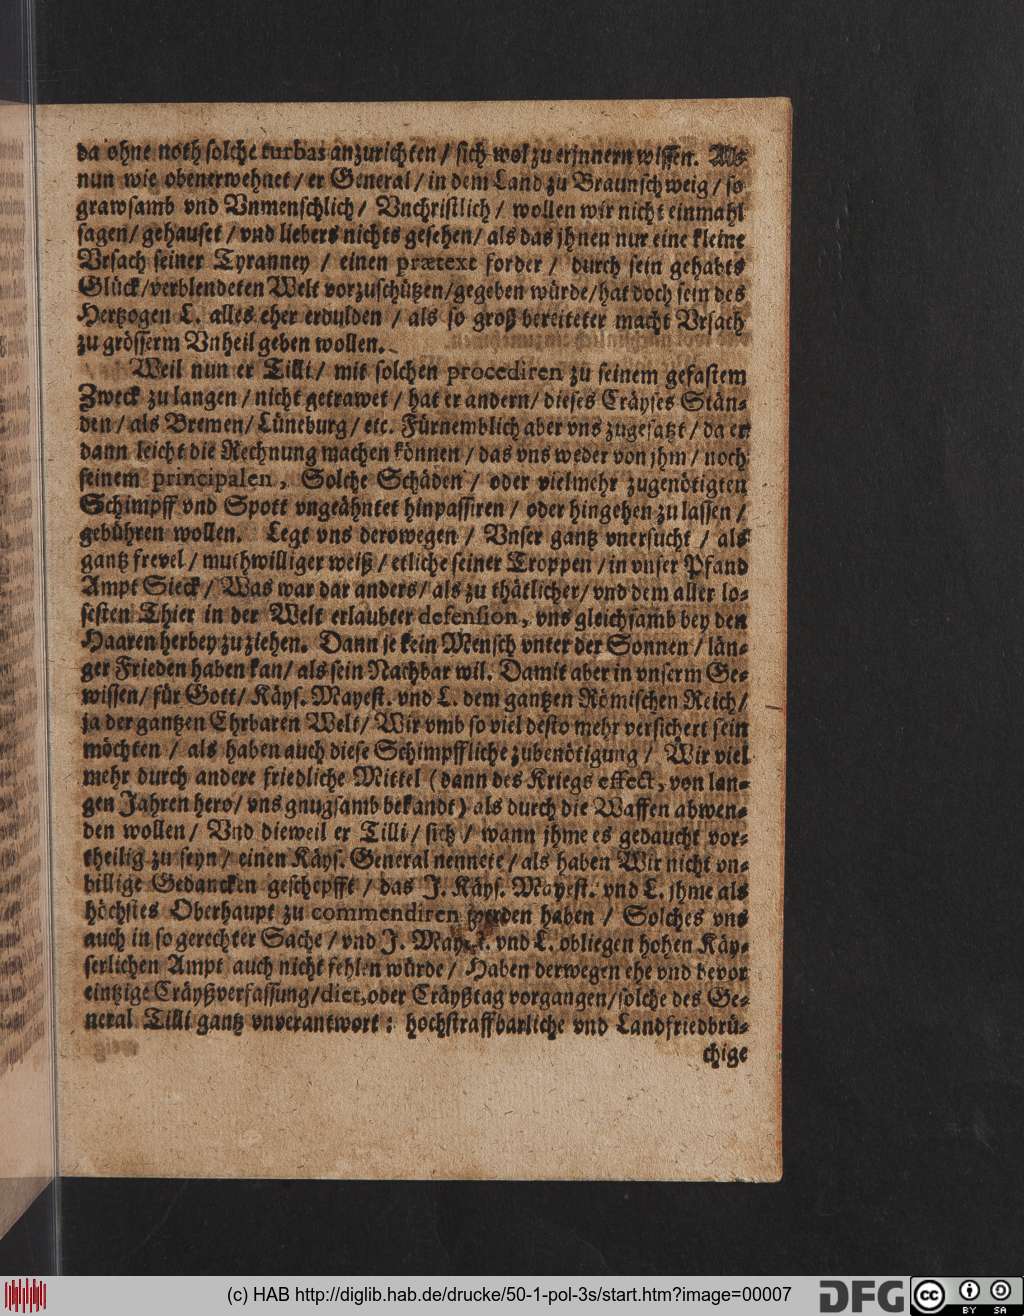 da ohne noth solche turbas anzurichten / sich wol zu erjnnern wissen. Als
nun wie obenerwehnet / er General / in dem Land zu Braunschweig / so
grawsamb vnd Vnmenschlich / Vnchristlich / wollen wir nicht einmahl
sagen / gehauset / vnd liebers nichts gesehen / als das jhnen nur eine kleine
Vrsach seiner Tyranney / einen prætext forder / durch sein gehabts
Glück / verblendeten Welt vorzuschützen / gegeben würde / hat doch sein des
Hertzogen L. alles eher erdulden / als so groß bereiteter macht Vrsach
zu grösserm Vnheil geben wollen.
Weil nun er Tilli / mit solchen procediren zu seinem gefastem
Zweck zu langen / nicht getrawet / hat er andern / dieses Cräyses Stän-
den / als Bremen / Lüneburg / etc. Fürnemblich aber vns zugesatzt / da er
dann leicht die Rechnung machen können / das vns weder von jhm / noch
seinem principalen, Solche Schäden / oder vielmehr zugenötigten
Schimpff vnd Spott vngeähntet hinpassiren / oder hingehen zu lassen /
gebühren wollen. Legt vns derowegen / Vnser gantz vnersucht / als
gantz frevel / muthwilliger weiß / etliche seiner Troppen / in vnser Pfand
Ampt Sieck / Was war dar anders / als zu thätlicher / vnd dem aller lo-
sesten Thier in der Welt erlaubter defension, vns gleichsamb bey den
Haaren herbey zu ziehen. Dann je kein Mensch vnter der Sonnen / län-
ger Frieden haben kan / als sein Nachbar wil. Damit aber in vnserm Ge-
wissen / für Gott / Käys. Mayest. vnd L. dem gantzen Römischen Reich /
ja der gantzen Ehrbaren Welt / Wir vmb so viel desto mehr versichert sein
möchten / als haben auch diese Schimpffliche zubenötigung / Wir viel
mehr durch andere friedliche Mittel (dann des Kriegs effect, von lan-
gen Jahren hero / vns gnugsamb bekandt) als durch die Waffen abwen-
den wollen / Vnd dieweil er Tilli / sich / wann jhme es gedaucht vor-
theilig zu seyn / einen Käys. General nennete / als haben Wir nicht vn-
billige Gedancken geschepfft / das J. Käys. Mayest. vnd L. jhme als
höchstes Oberhaupt zu commendiren werden haben / Solches vns
auch in so gerechter Sache / vnd J. Mayest. vnd L. obliegen hohen Käy-
serlichen Ampt auch nicht fehlen würde / Haben derwegen ehe vnd bevor
eintzige Cräyßverfassung / diet, oder Cräyßtag vorgangen / solche des Ge-
neral Tilli gantz vnverantwort: hochstraffbarliche vnd Landfriedbrü-
chige
(c) HAB http://diglib.hab.de/drucke/50-1-pol-3s/start.htm?image=00007
DFG
cc
BY SA